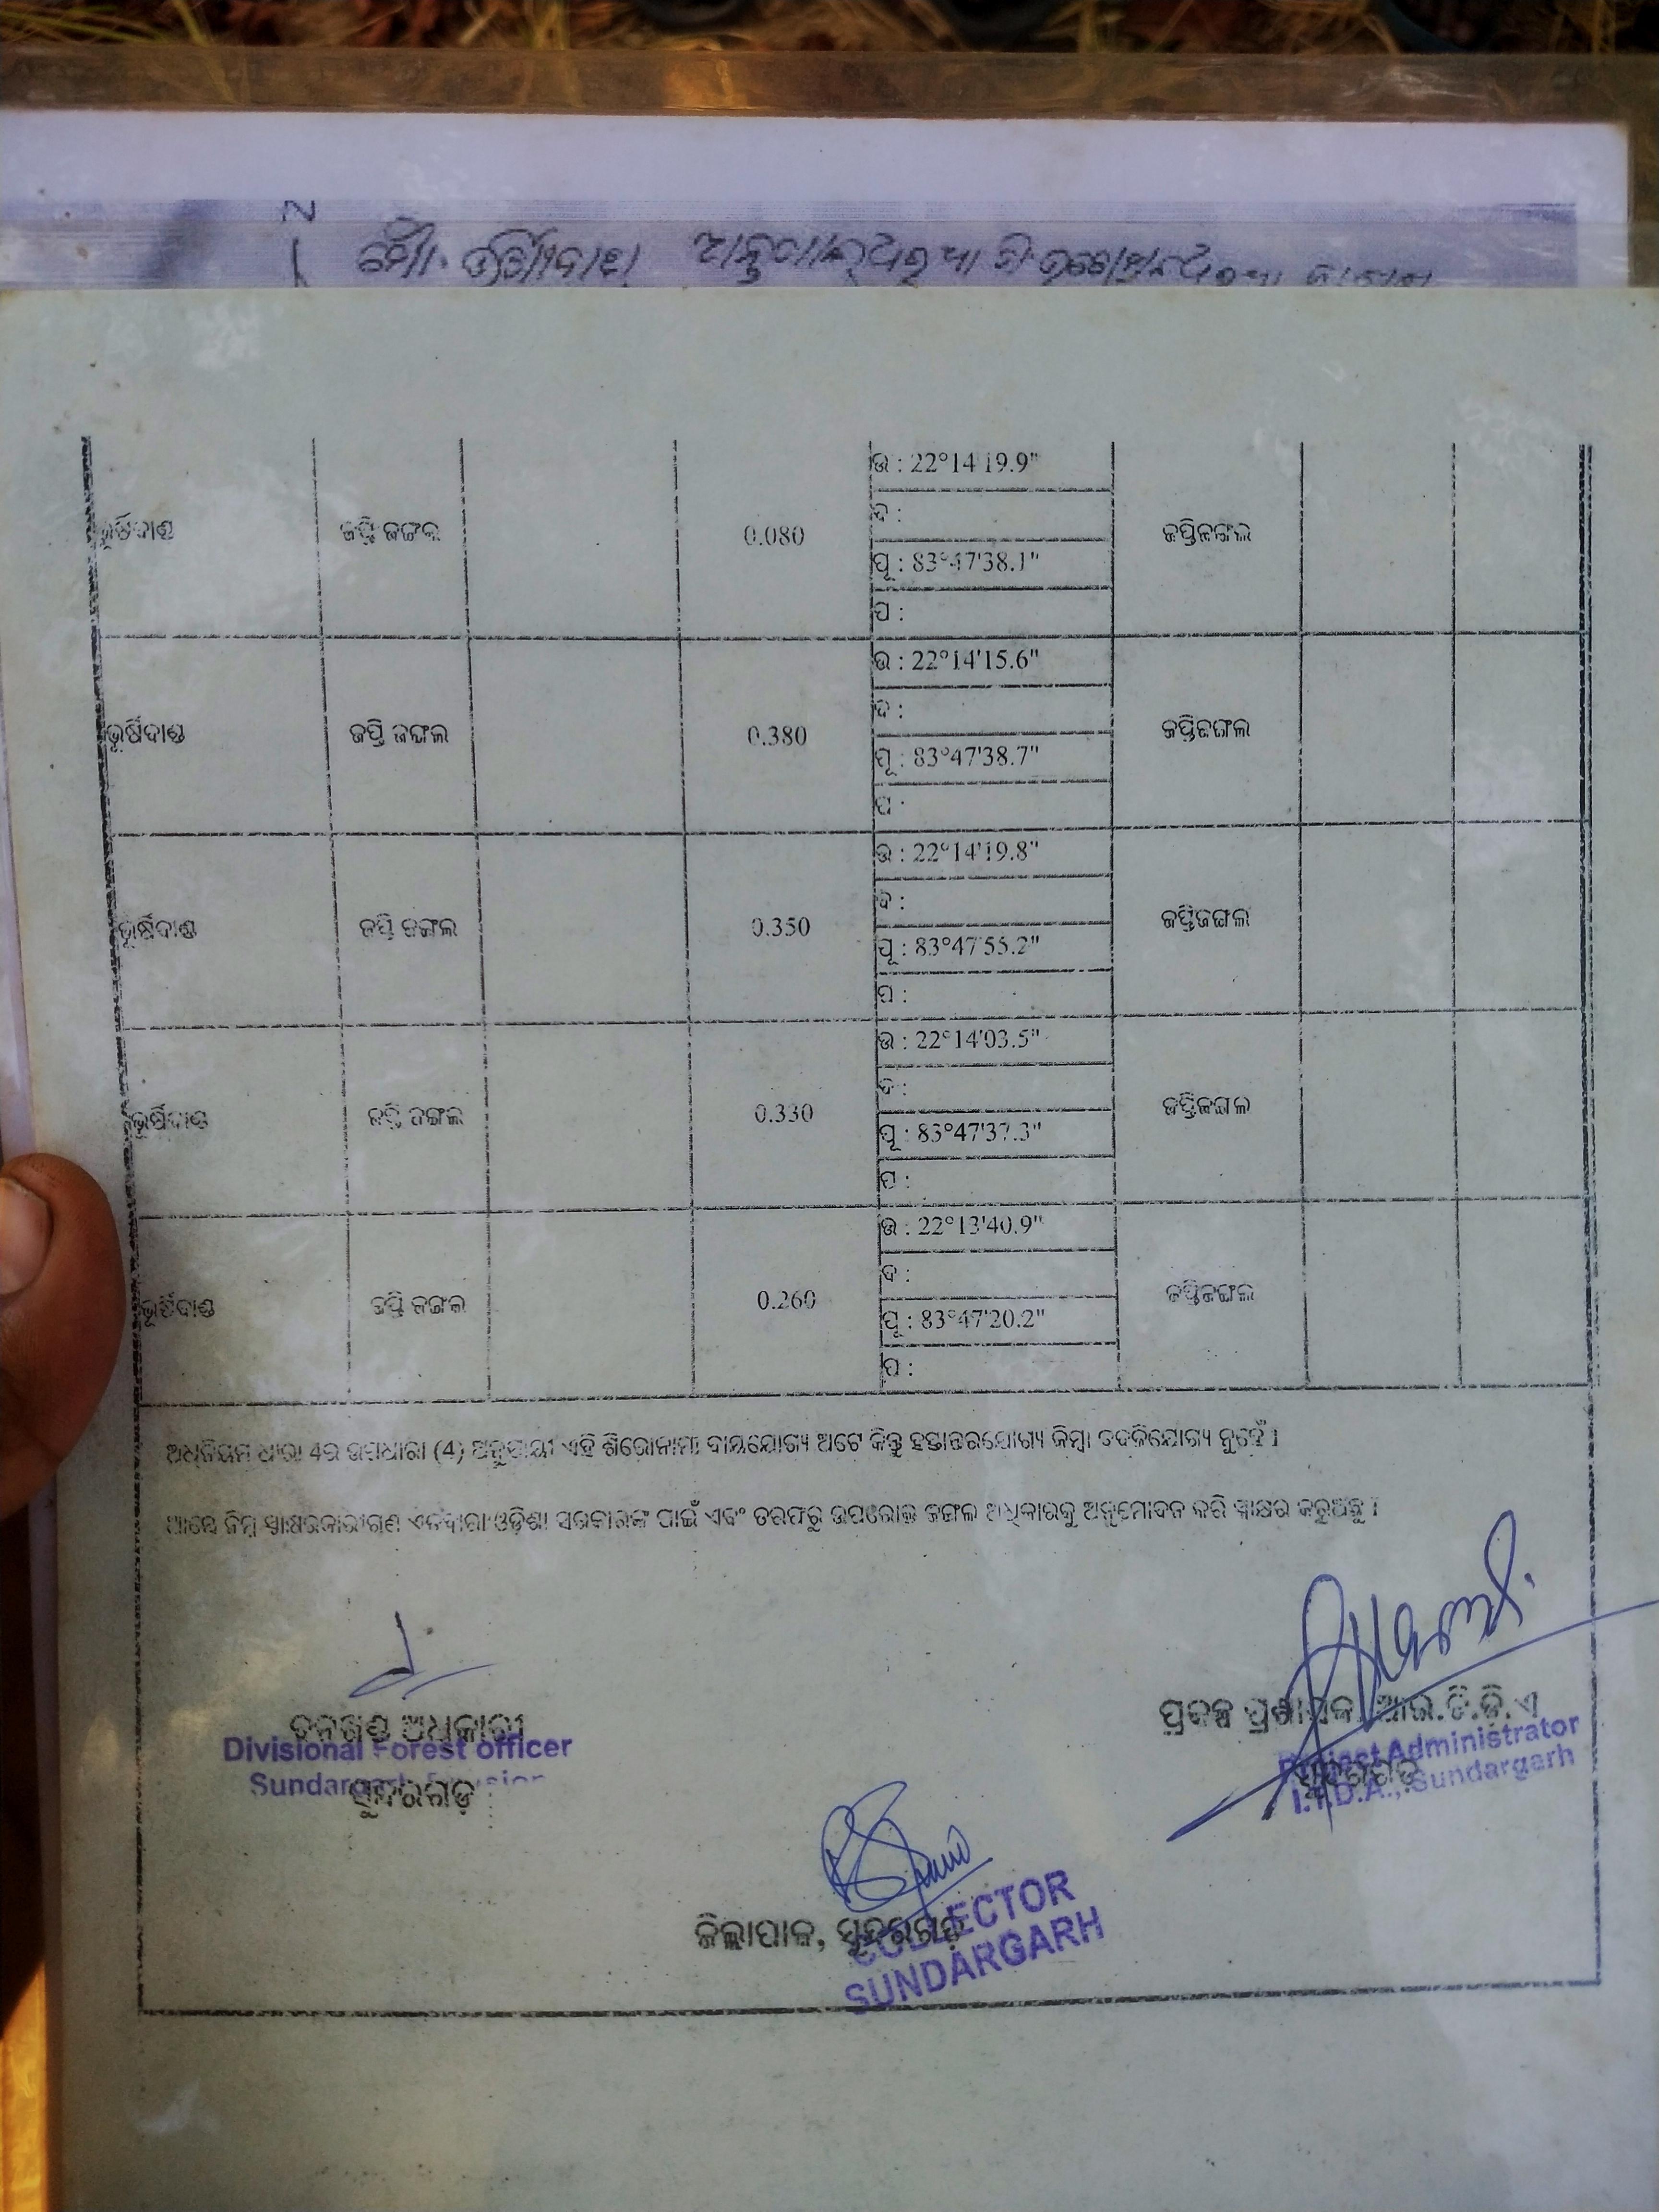 ମୌ.
ଭୂର୍ଷିଦାଣ୍ଡ ଜପ୍ତି ଜଙ୍ଗଲ 0.080 ଜପ୍ତିଜଙ୍ଗଲ
ଉ : 22°14'19.9"
ଦ :
ପୂ : 83°47'38.1"
ପ :
ଭୂର୍ଷିଦାଣ୍ଡ ଜପ୍ତି ଜଙ୍ଗଲ 0.380 ଜପ୍ତିଜଙ୍ଗଲ
ଉ : 22°14'15.6"
ଦ :
ପୂ : 83°47'38.7"
ପ :
ଭୂର୍ଷିଦାଣ୍ଡ ଜପ୍ତି ଜଙ୍ଗଲ 0.350 ଜପ୍ତିଜଙ୍ଗଲ
ଉ : 22°14'19.8"
ଦ :
ପୂ : 83°47'55.2"
ପ :
ଭୂର୍ଷିଦାଣ୍ଡ ଜପ୍ତି ଜଙ୍ଗଲ 0.330 ଜପ୍ତିଜଙ୍ଗଲ
ଉ : 22°14'03.5"
ଦ :
ପୂ : 83°47'37.3"
ପ :
ଭୂର୍ଷିଦାଣ୍ଡ ଜପ୍ତି ଜଙ୍ଗଲ 0.260 ଜପ୍ତିଜଙ୍ଗଲ
ଉ : 22°13'40.9"
ଦ :
ପୂ : 83°47'20.2"
ପ :
ଅଧିନିୟମ ଧାରା 4ର ଉପଧାରା (4) ଅନୁଯାୟୀ ଏହି ଶିରୋନାମା ଦାୟଯୋଗ୍ୟ ଅଟେ କିନ୍ତୁ ହସ୍ତାନ୍ତରଯୋଗ୍ୟ କିମ୍ବା ବଦଳିଯୋଗ୍ୟ ନୁହେଁ ।
ଆମ୍ଭେ ନିମ୍ନ ସ୍ୱାକ୍ଷରକାରୀଗଣ ଏତଦ୍ୱାରା ଓଡ଼ିଶା ସରକାରଙ୍କ ପାଇଁ ଏବଂ ତରଫରୁ ଉପରୋକ୍ତ ଜଙ୍ଗଲ ଅଧିକାରକୁ ଅନୁମୋଦନ କରି ସ୍ୱାକ୍ଷର କରୁଅଛୁ ।
ବନଖଣ୍ଡ ଅଧିକାରୀ
Divisional Forest officer
Sundargarh Division
ସୁନ୍ଦରଗଡ଼
ପ୍ରକଳ୍ପ ପ୍ରଶାସକ, ଆଇ.ଟି.ଡି.ଏ
Project Administrator
ସୁନ୍ଦରଗଡ଼
I.T.D.A., Sundargarh
ଜିଲ୍ଲାପାଳ, ସୁନ୍ଦରଗଡ଼
COLLECTOR
SUNDARGARH